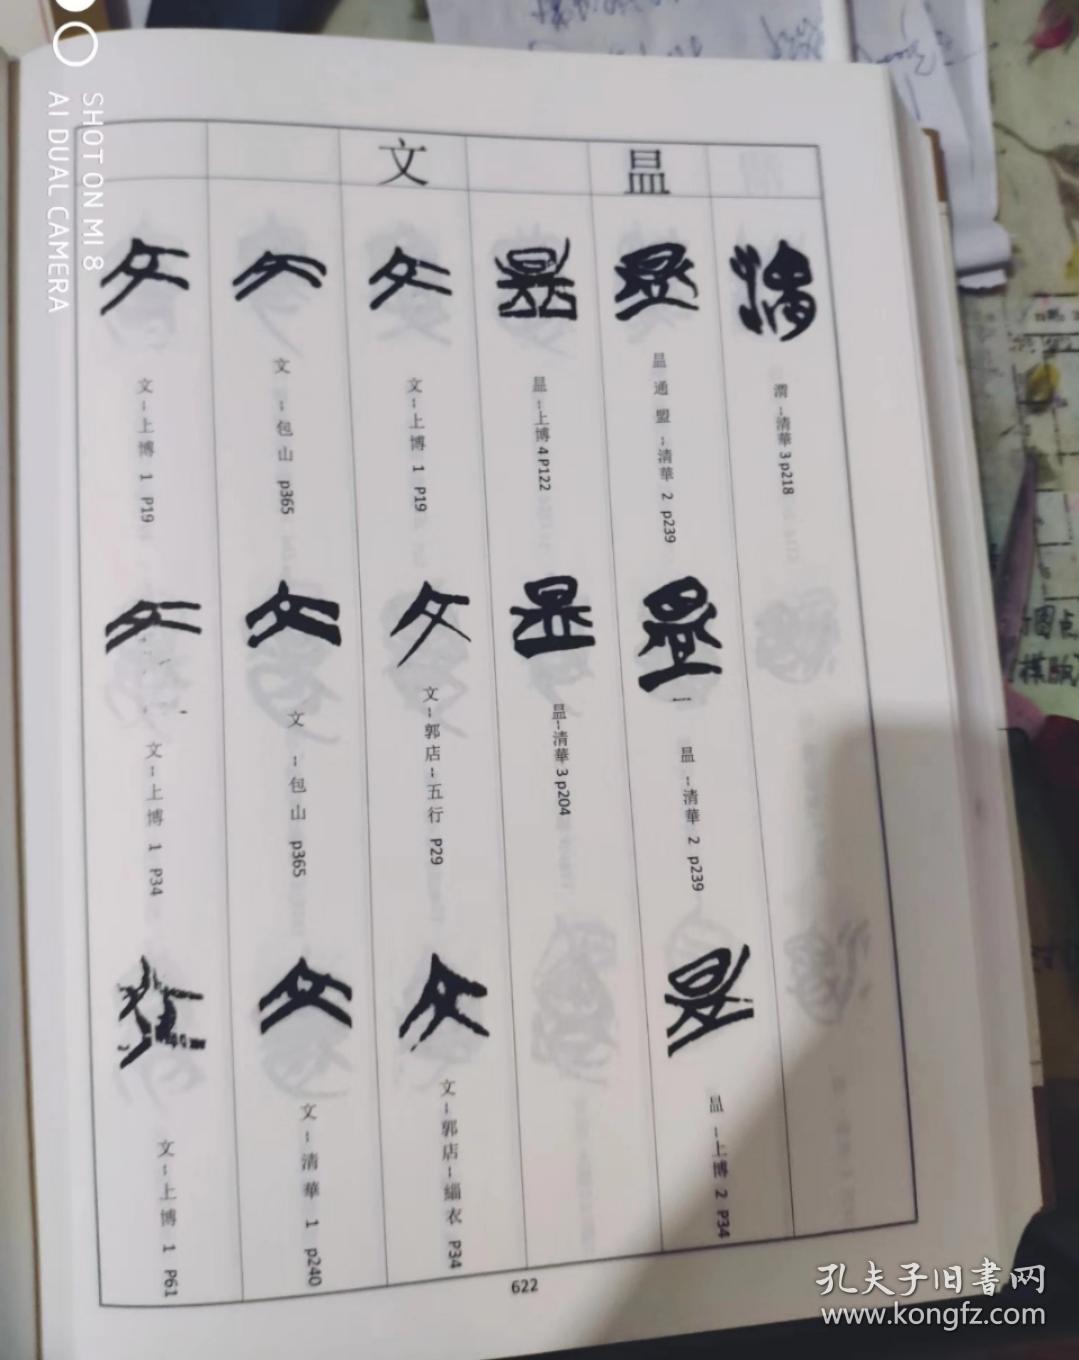 昷
文
渭~清華 3 p218
昷 通 盟 ~清華 2 p239
昷 ~清華 2 p239
昷 ~上博 2 P34
昷~上博 4 P122
昷~清華 3 p204
文~上博 1 P19
文~郭店~五行 P29
文~郭店~緇衣 P34
文 ~包山 p365
文 ~包山 p365
文~清華 1 p240
文~上博 1 P19
文~上博 1 P34
文~上博 1 P61
622
SHOT ON MI 8
AI DUAL CAMERA
孔夫子旧書网
www.kongfz.com